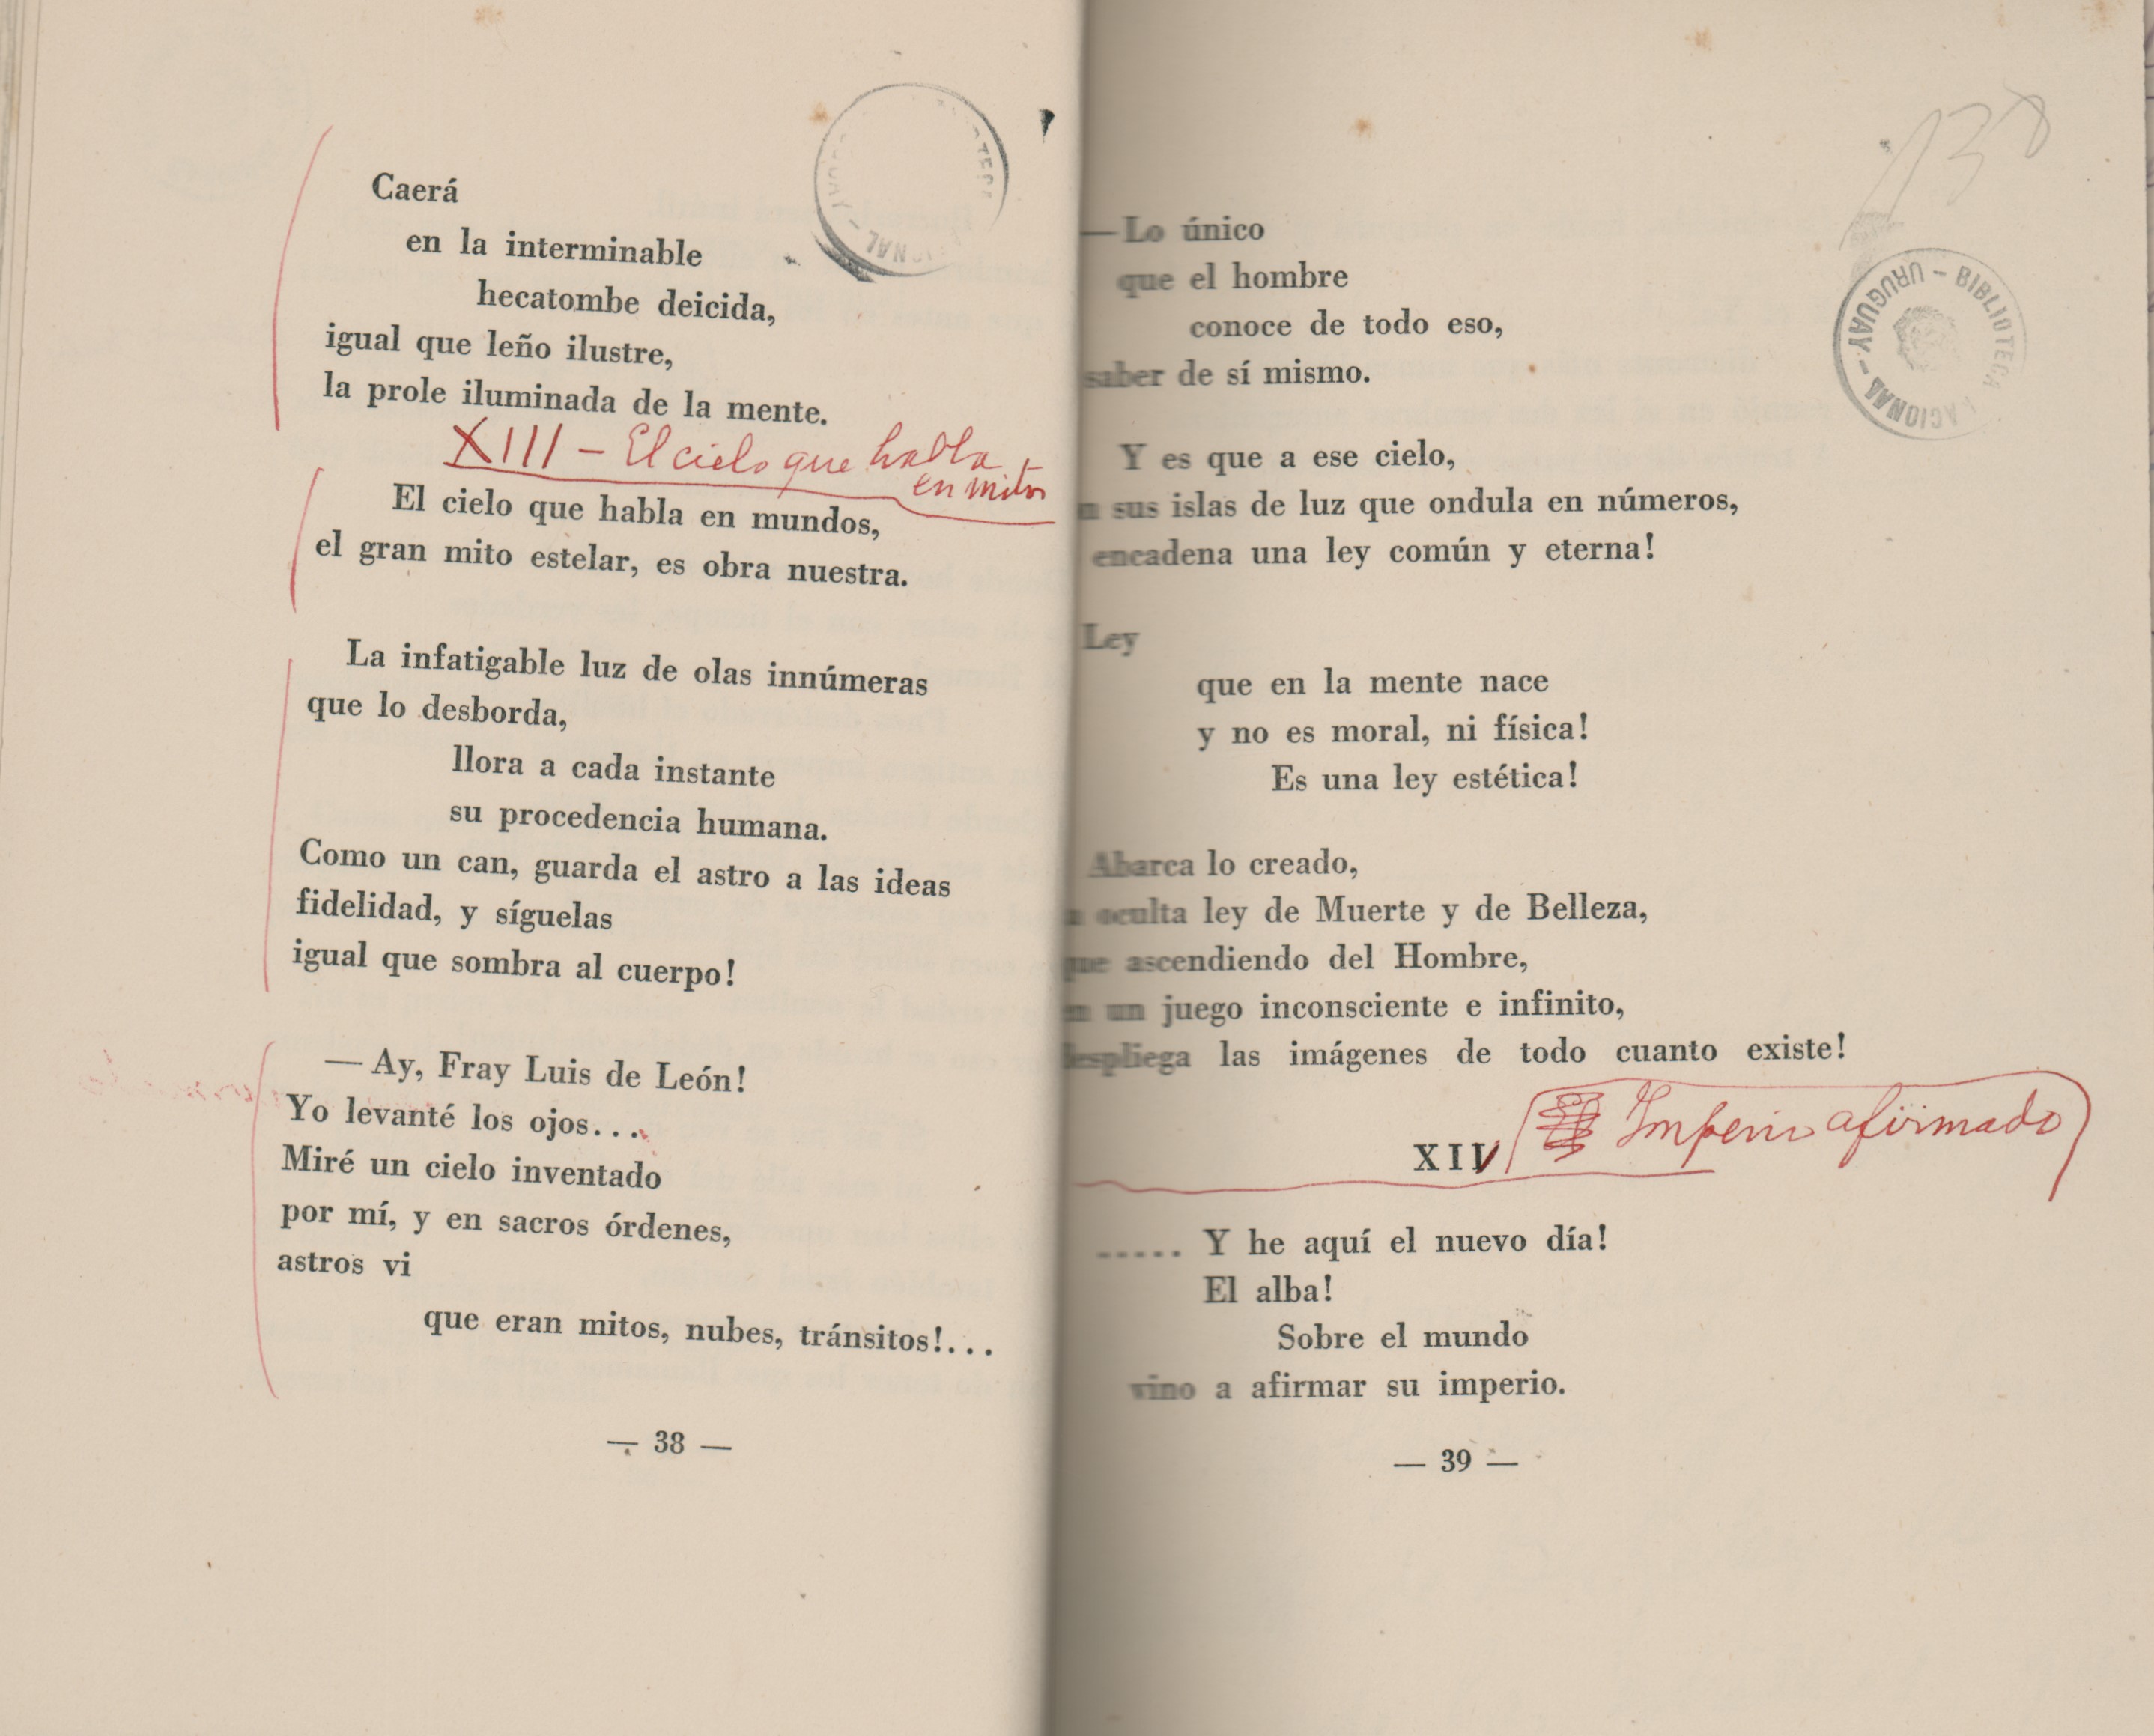 Caerá
en la interminable
hecatombe deicida,
igual que leño ilustre,
la prole iluminada de la mente.
XIII – El cielo que habla
en mitos
El cielo que habla en mundos,
el gran mito estelar, es obra nuestra.
La infatigable luz de olas innúmeras
que lo desborda,
llora a cada instante
su procedencia humana.
Como un can, guarda el astro a las ideas
fidelidad, y síguelas
igual que sombra al cuerpo!
— Ay, Fray Luis de León!
Yo levanté los ojos...
Miré un cielo inventado
por mí, y en sacros órdenes,
astros vi
que eran mitos, nubes, tránsitos!...
— 38 —
138
BIBLIOTECA NACIONAL – URUGUAY –
—Lo único
que el hombre
conoce de todo eso,
saber de sí mismo.
Y es que a ese cielo,
sus islas de luz que ondula en números,
encadena una ley común y eterna!
Ley
que en la mente nace
y no es moral, ni física!
Es una ley estética!
Abarca lo creado,
oculta ley de Muerte y de Belleza,
que ascendiendo del Hombre,
en un juego inconsciente e infinito,
despliega las imágenes de todo cuanto existe!
XIV Imperio afirmado
..... Y he aquí el nuevo día!
El alba!
Sobre el mundo
vino a afirmar su imperio.
— 39 —